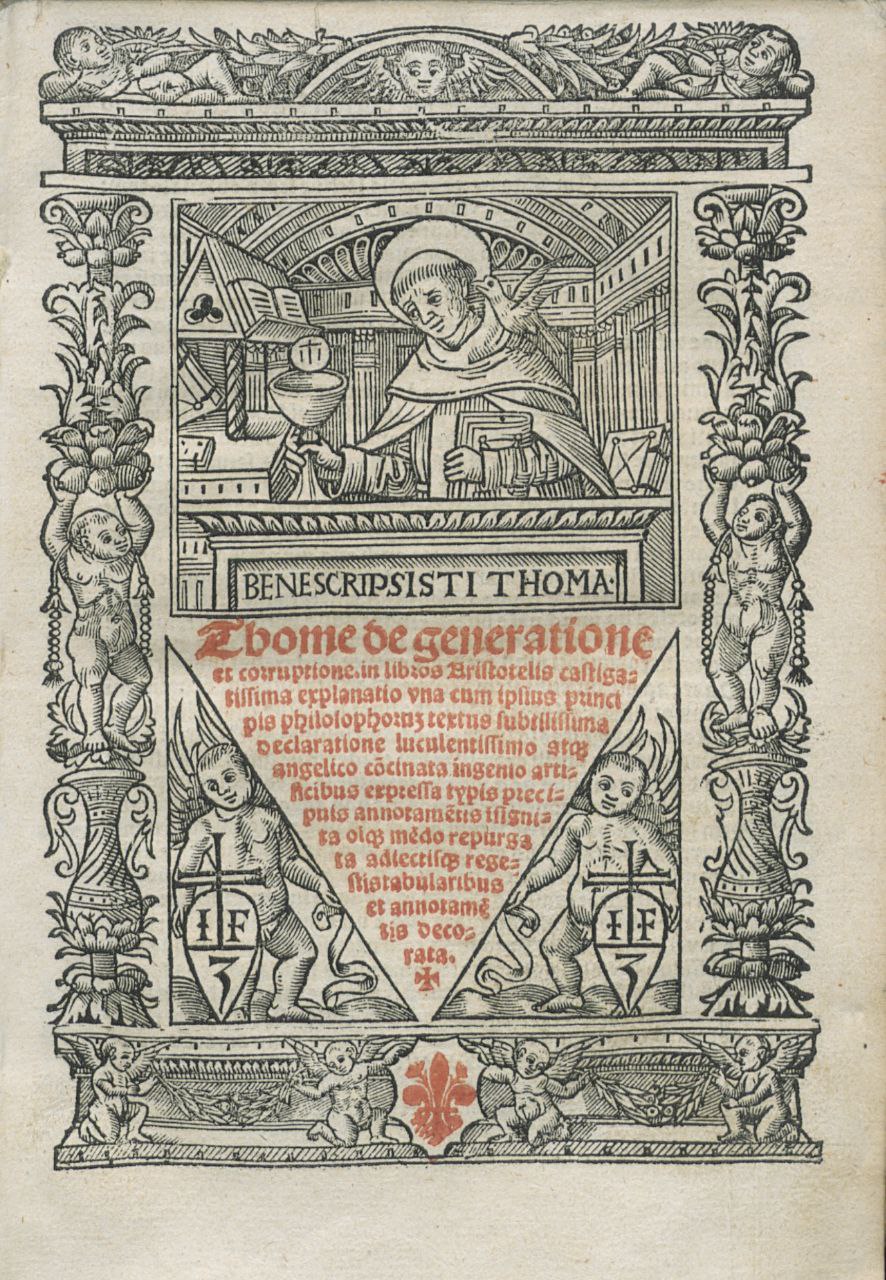 BENE SCRIPSISTI THOMA·
Thome de generatione
et corruptione. in libros Aristotelis castiga-
tissima explanatio vna cum ipsius princi
pis philosophoruꝫ textus subtilissima
declaratione luculentissimo atqꝫ
angelico cōcinata ingenio arti-
ficibus expressa typis preci-
puis annotamētis isigni-
ta oiqꝫ mēdo repurga
ta adiectisqꝫ rege-
stis tabularibus
et annotamē
tis deco-
rata.
✠
I F
3
I F
3